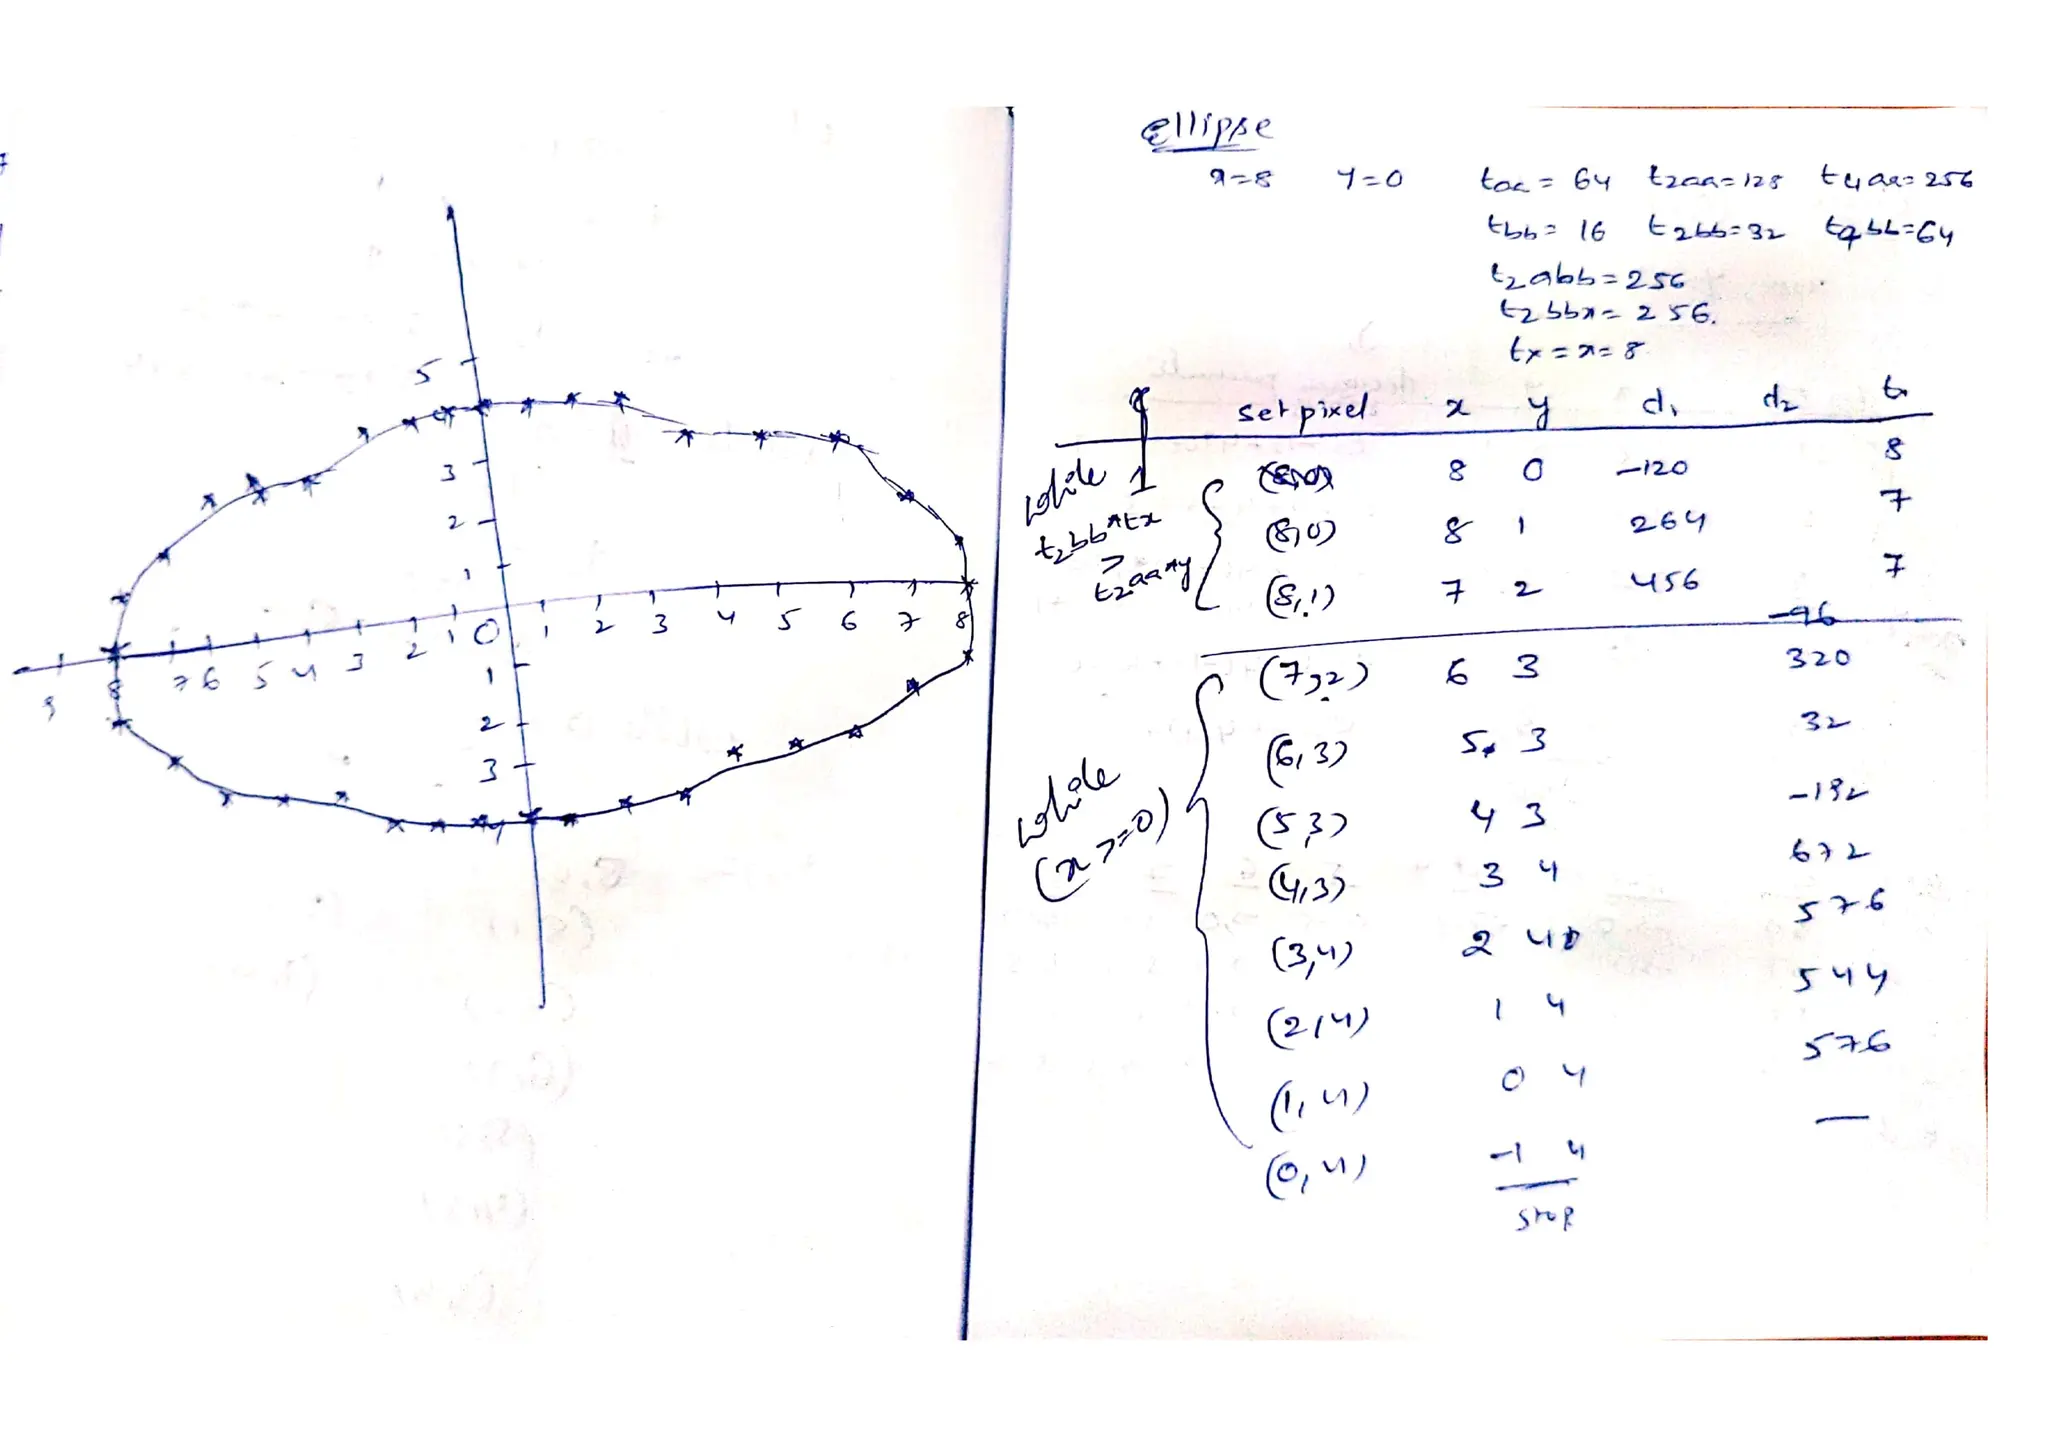 5
3
2
1
9 8 7 6 5 4 3 2 1 0 1 2 3 4 5 6 7 8
1
2
3
4
ellipse
x=8 y=0 taa = 64 t2aa=128 t4aa=256
tbb = 16 t2bb=32 t4bb=64
t2abb=256
t2bbx= 256.
tx = x= 8
setpixel x y d1 d2 tx
while 1 (8,0) 8 0 -120 8
t2bb*tx (8,0) 8 1 264 7
>
t2aa*y (8,1) 7 2 456 7
-96
(7,2) 6 3 320
(6,3) 5 3 32
while (5,3) 4 3 -192
(x>=0) (4,3) 3 4 672
(3,4) 2 4 576
(2,4) 1 4 544
(1,4) 0 4 576
(0,4) -1 4 —
stop